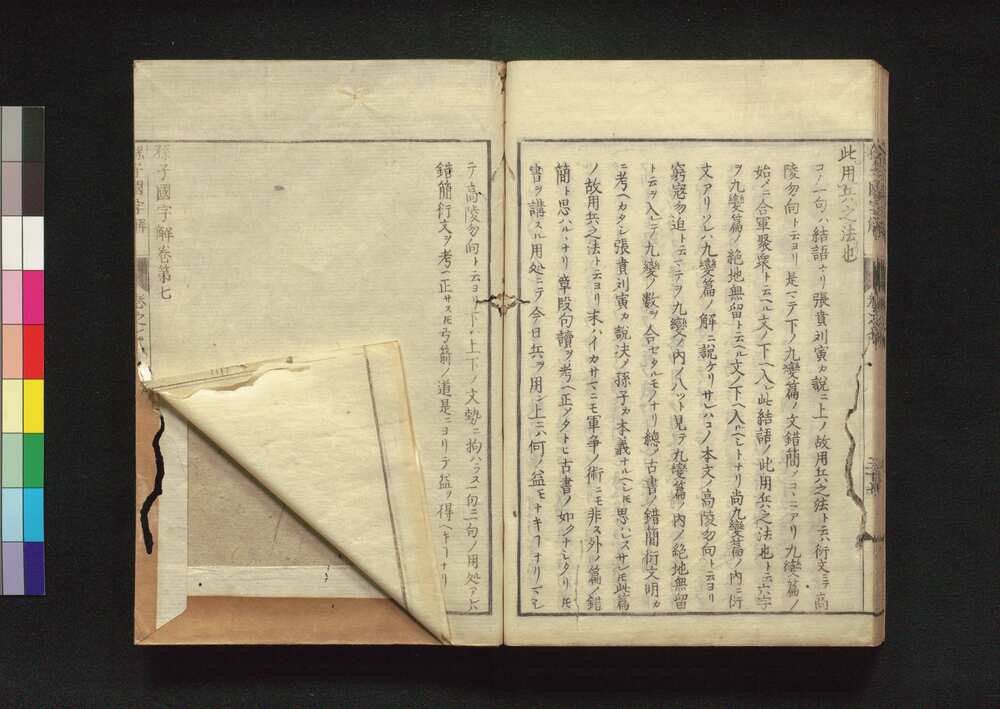 此用兵之法也
コノ一句ハ結語ナリ張賁刘寅カ說ニ上ノ故用兵之法ト云ハ衍文ニテ高
陵勿向ト云ヨリ是マテ下ノ九變篇ノ文錯簡ノコヽニアリ九變篇ノ
始メニ合軍聚衆ト云ヘル文ノ下ヘ入レ此結語ノ此用兵之法也ト云六字
ヲ九變篇ノ絶地無留ト云ヘル文ノ下ヘ入ルヘシトナリ尚九變篇ノ内ニ衍
文アリソレハ九變篇ノ解ニ說ケリサレハコノ本文ノ高陵勿向ト云ヨリ
窮寇勿迫ト云マテヲ九變ノ内ノ八ツト見テ九變篇ノ内ノ絶地無留
ト云ヲ入レテ九變ノ數ヲ合セタルモノナリ總メ古書ノ錯簡衍文明カ
ニ考ヘカタシ張賁刘寅カ說決メ孫子カ本義ナルヘシ𪜈思ハレスサレ𪜈此篇
ノ故用兵之法ト云ヨリ末ハイカサマニモ軍争ノ術ニモ非ス外ノ篇ノ錯
簡ト思ハルヽナリ章段句讀ヲ考ヘ正メタトヒ古書ノ如クナシタリ𪜈
書ヲ講スル用処ニテ今日兵ヲ用ン上ニハ何ノ益モナキヿナリマシ
テ高陵勿向ト云ヨリ下ハ上下ノ文勢ニ拘ハラス一句二句ノ用処アレハ
錯簡衍文ヲ考ヘ正サス𪜈弓箭ノ道是ニヨリテ益ヲ得ヘキヿナリ
孫子國字解卷第七
孫子國字解